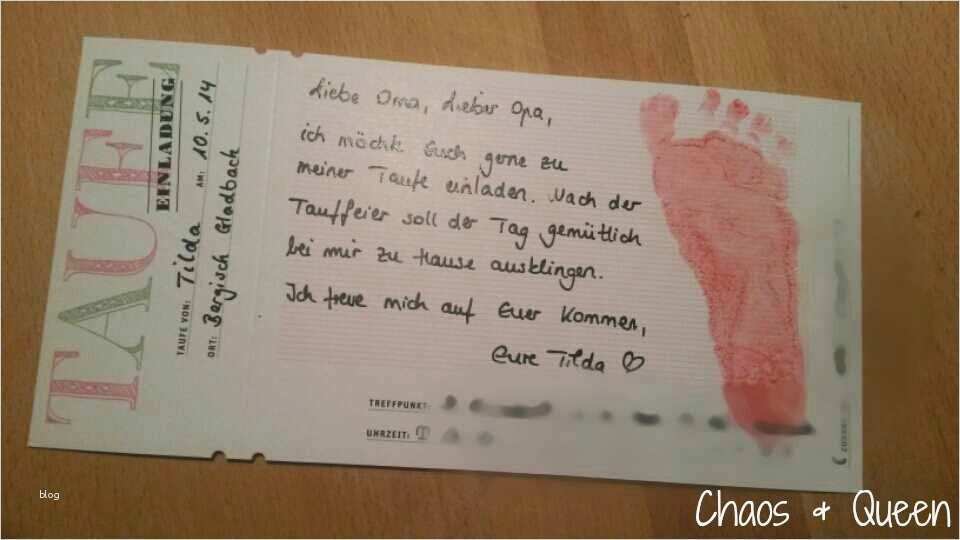 TAUFE
EINLADUNG
TAUFE VON: Tilda AM: 10.5.14
ORT: Bergisch Gladbach
Liebe Oma, Lieber Opa,
ich möchte Euch gerne zu
meiner Taufe einladen. Nach der
Tauffeier soll der Tag gemütlich
bei mir zu Hause ausklingen.
Ich freue mich auf Euer Kommen,
Eure Tilda ♡
TREFFPUNKT:
UHRZEIT:
blog
Chaos & Queen